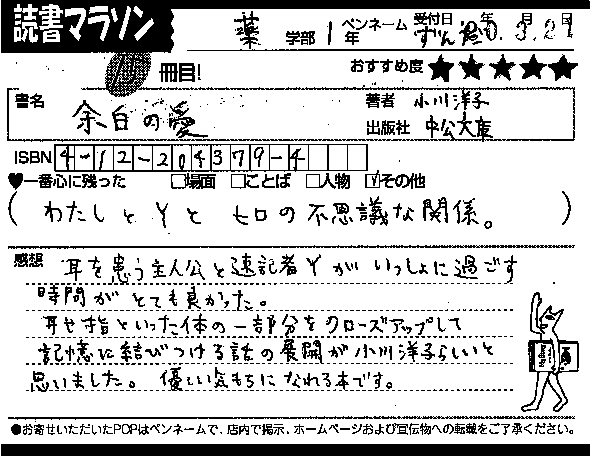 読書マラソン
薬 学部 1年 ペンネーム ずん 受付日 年 月 日 0.3.27
冊目! おすすめ度 ★★★★★
書名 余白の愛 著者 小川洋子
出版社 中公文庫
ISBN 4-12-204379-4
♥一番心に残った □場面 □ことば □人物 ☑その他
( わたしとYとヒロの不思議な関係。 )
感想 耳を患う主人公と速記者Yがいっしょに過ごす
時間がとても良かった。
耳や指といった体の一部分をクローズアップして
記憶に結びつける話の展開が小川洋子らしいと
思いました。優しい気もちになれる本です。
●お寄せいただいたPOPはペンネームで、店内で掲示、ホームページおよび宣伝物への転載をご了承ください。